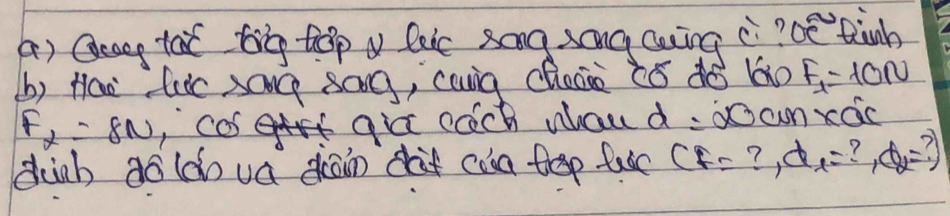 a) Quy tắc tổng hợp 2 lực song song cùng c ? Vẽ hình
b) Hai lực song song, cùng chiều có độ lớn F₁ = 10N
F₂ = 8N, có giá cách nhau d = 20cm xác
định độ lớn và điểm đặt của hợp lực (F = ?, d₁ = ?, d₂ = ?)